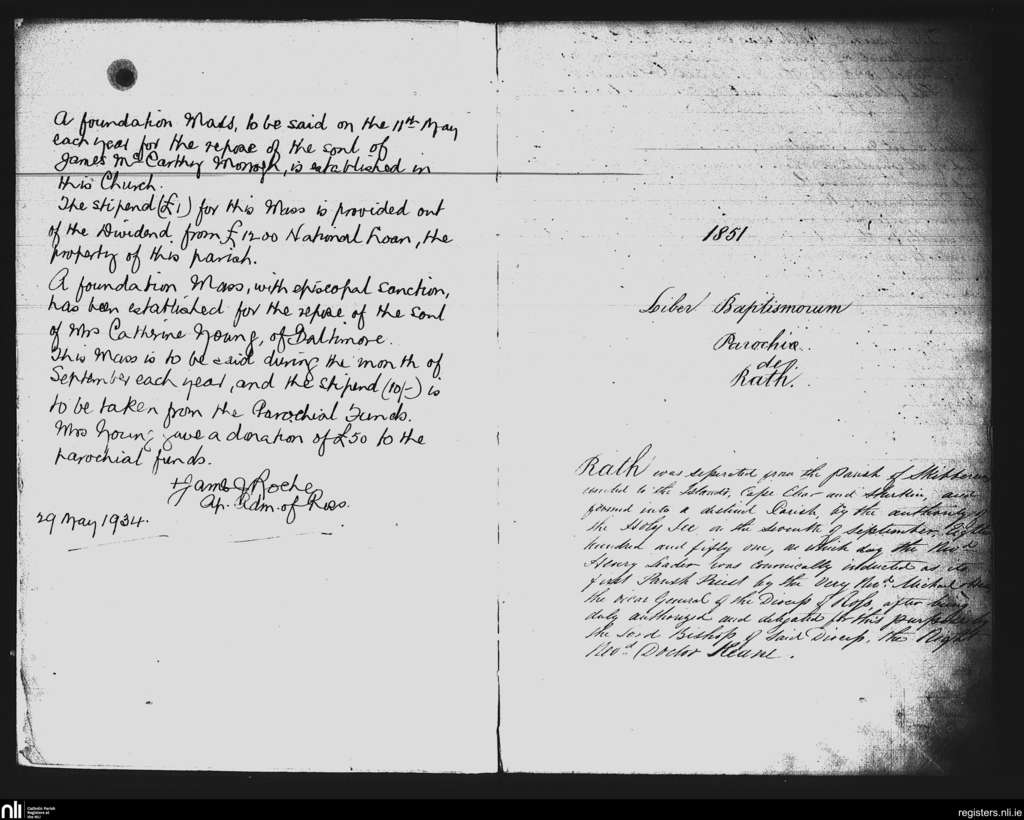 A foundation Mass, to be said on the 11th May
each year for the repose of the soul of
James Mc Carthy Morrogh, is established in
this Church.
The stipend (£1) for this Mass is provided out
of the Dividend from £1200 National Loan, the
property of this parish.
A foundation Mass, with episcopal sanction,
has been established for the repose of the soul
of Mrs Catherine Young, of Baltimore.
This Mass is to be said during the month of
September each year, and the stipend (10/-) is
to be taken from the Parochial Funds.
Mrs Young gave a donation of £50 to the
parochial funds.
+James J Roche
Ap. Adm. of Ross.
29 May 1934.
1851
Liber Baptismorum
Parochiæ
de
Rath.
Rath was separated from the parish of
united to the Islands, Cape Clear and Sherkin, and
formed into a distinct Parish by the authority of
the Holy See on the seventh of September, Eight
hundred and fifty one, on which day the Revd
Henry Leader was canonically inducted as its
first Parish Priest by the Very Revd. Michael
the Vicar General of the Diocess of Ross, after being
duly authorized and delegated for this purpose by
the Lord Bishop of Said Diocess, the Right
Revd Doctor Keane.
nli
Catholic Parish
Registers at
the NLI
registers.nli.ie